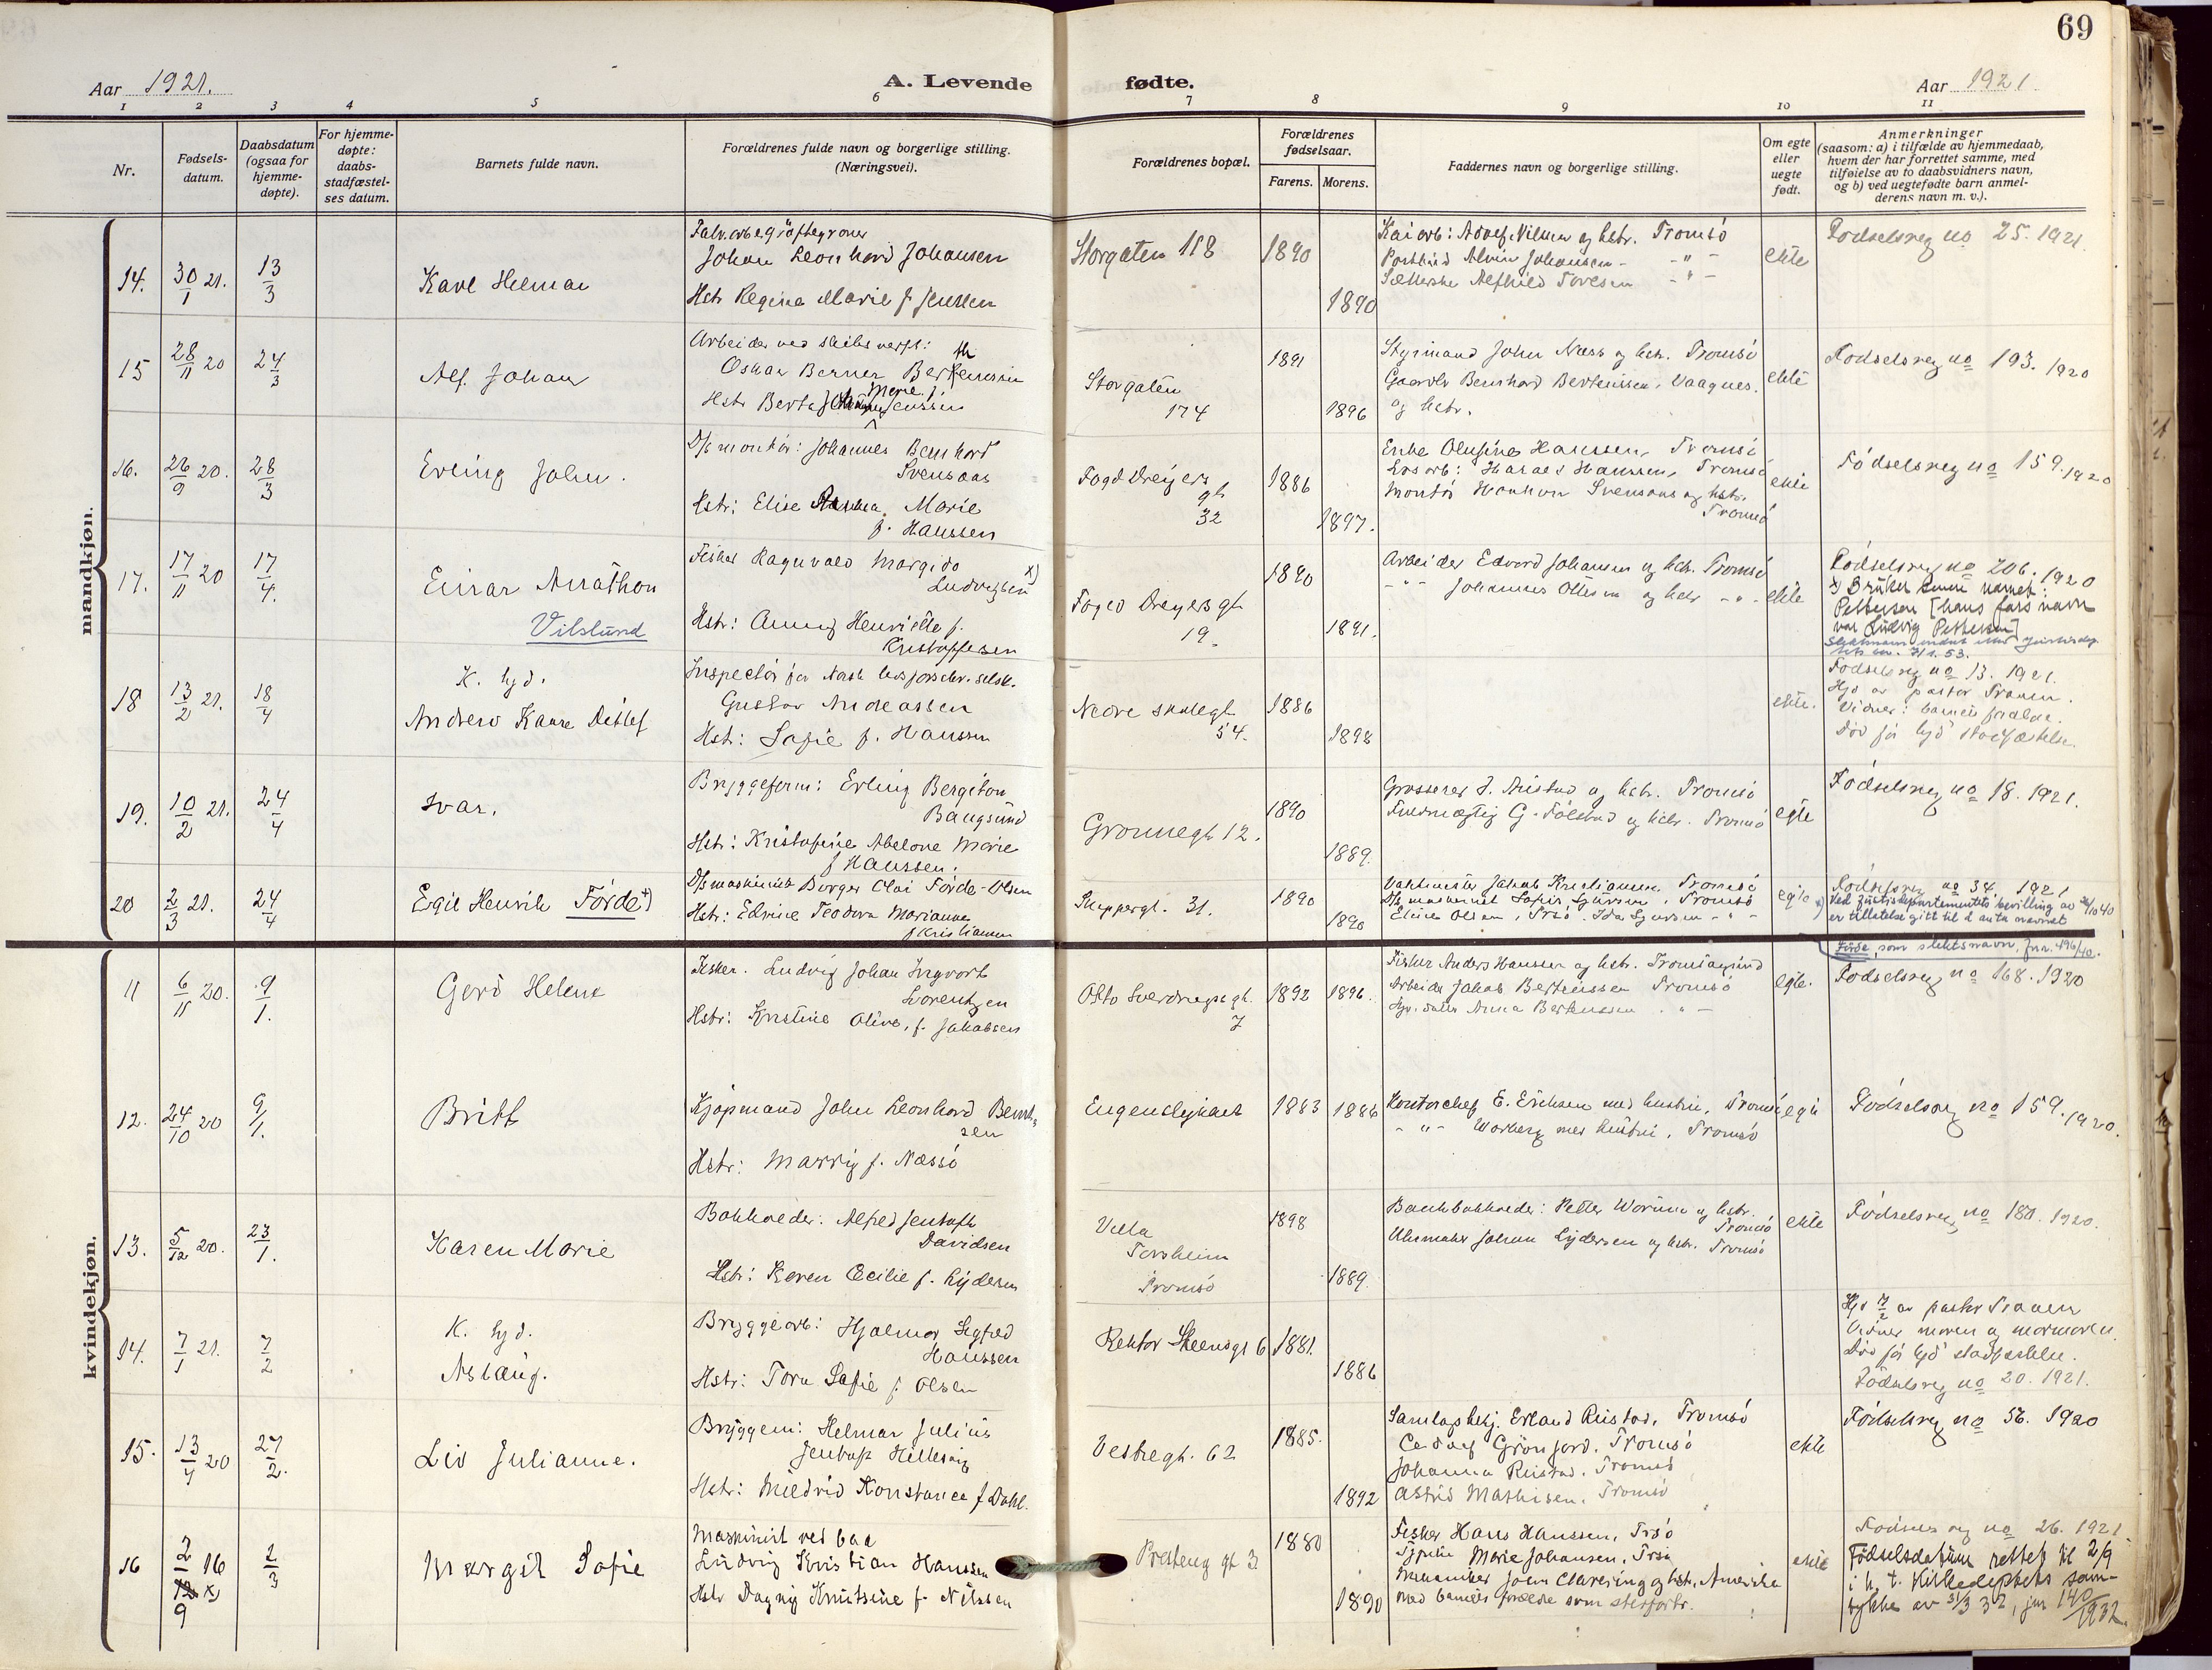 69
Aar 1921.
A. Levende fødte.
Aar 1921
1 2 3 4 5 6 7 8 9 10 11
Nr.
Fødsels-
datum.
Daabsdatum
(ogsaa for
hjemme-
døpte).
For hjemme-
døpte:
daabs-
stadfæstel-
ses datum.
Barnets fulde navn.
Forældrenes fulde navn og borgerlige stilling.
(Næringsvei).
Forældrenes bopæl.
Forældrenes
fødselsaar.
Farens. Morens.
Faddernes navn og borgerlige stilling.
Om egte
eller
uegte
født.
Anmerkninger
(saasom: a) i tilfælde av hjemmedaab,
hvem der har forrettet samme, med
tilføielse av to daabsvidners navn,
og b) ved uegtefødte barn anmel-
derens navn m. v.).
mandkjøn.
14. 30/1 21. 13/3
Karl Helmar
Johan Leonhard Johansen
Hstr Regina Marie f Jenssen
Storgaten 118
1890
1890
og hstr. Tromsö
Alvin Johansen - " -
ekte
Fødselsreg no 25. 1921.
15 28/11 20 24/3
Alf Johan
Arbeider ved skibsverft:
Oskar Berner
Hstr Berta Marie Jenssen
Storgaten
174
1891
1896
Styrmand John Næss og hstr. Tromsö
Bernhard Bertheussen, Vaagnes.
og hstr.
ekte
Fødselsreg no 193. 1920
16. 26/9 20. 28/3
Erling John.
D/s montör: Johannes Bernhard
Svensaas
Hstr: Elise Marie
f. Hanssen
Fogd Dreyers
gt
32
1886
1897.
Enke Olufine Hanssen, Tromsö
Harald Hanssen, Tromsö
Montör Haakon Svensaas og hstr.
Tromsö
ekte
Fødselsreg no 159. 1920
17. 17/11 20 17/4.
Einar Marathon
Vilslund
Fisker Ragnvald Margido
Ludvigsen x)
Hstr: Anny Henriette f.
Kristoffersen
Fogd Dreyers gt
19.
1890
1891.
Arbeider Edvard Johansen og hstr. Tromsö
- " - Johannes Ottesen og hstr - " -
ekte
Fødselsreg no 206. 1920
x) Bruker navnet:
Pettersen [hans fars navn
var Ludvig Pettersen]
18 13/2 21. 18/4
K. hjd.
Andrew Kaare Detlef
Gustav Andreassen
Hstr: Sofie f. Hanssen
Nedre skolegt
54.
1886
1898
ekte.
Fødselsreg no 13. 1921.
Hjd av pastor Tranem.
Vidner: barnets forældre.
Död för hjd stadfæstelse.
19. 10/2 21. 24/4
Ivar.
Bryggeform: Erling Bergiton
Bangsund
Hstr: Kristofine Abelone Marie
f Hanssen.
Grönnegt 12.
1890
1889.
Grosserer J. Aristad og hstr. Tromsö
Fuldmægtig G. og hstr. Tromsö
egte
Fødselsreg no 18. 1921.
20 2/3 21. 24/4
Egil Henrik Förde +)
D/s maskinist Borger Olai Förde-Olsen
Hstr: Edvine Teodora Marianne
f Kristiansen
Skippergt. 31.
1890
1890
Jakob Kristiansen Tromsö
egte
Fødselsreg no 34. 1921
Ved Justisdepartementets bevilling av
er tillatelse gitt til å anta navnet
Förde, som slektsnavn, jnr. 496/40.
kvindekjøn.
11 6/11 20. 9/1.
Gerd Helene
Fisker. Ludvig Johan Ingvart
Lorentzen
Hstr: Kristine Olive, f. Jakobsen
Otto Sverdrupsgt.
7
1892 1896.
Fisker Anders Hanssen og hstr. Tromsösund
Arbeider Jakob Bertheussen Tromsö
Anna Bertheussen - " -
egte.
Fødselsreg no 168. 1920
12. 24/10 20 9/1.
Britt
Kjöpmand John Leonhard Bernt-
sen
Hstr: Marry f. Næssö
Eugenslykket
1883 1886
Kontorchef E. Erichsen med hustru, Tromsö
- " - Worberg med hustru, Tromsö
egte
Fødselsreg no 159. 1920.
13. 5/12 20. 23/1.
Karen Marie
Bokholder: Alfred Jentoft
Davidsen
Hstr: Karen Cecilie f. Lydersen
Villa
Torsheim
Tromsö
1898
1889.
Bankbokholder: Petter Worum og hstr.
Tromsö
Uhrmaker Johan Lydersen og hstr. Tromsö
ekte
Fødselsreg no 180. 1920.
14. 7/1 21. 7/2
K. hjd.
Aslaug.
Bryggearb: Hjalmar Sigfred
Hanssen
Hstr: Tora Sofie f. Olsen
Rektor Steensgt 6
1881.
1886
Hjd 7/2 av pastor Tranem
Vidner moren og mormoren.
Död för hjd stadfæstelse.
Fødselsreg no 20. 1921.
15. 13/4 20 27/2.
Liv Julianne.
Bryggem: Helmar Julius
Jentoft Hillesöy
Hstr: Mildrid Konstance f Dahl.
Vestregt. 62
1885.
1892
Erland Ristad, Tromsö
Grönfjord. Tromsö
Johanna Ristad. Tromsö
Astrid Mathisen. Tromsö
ekte
Fødselsreg no 56. 1920
16 2/9 16 x) 2/3
Margit Sofie
Maskinist ved bad
Ludvig Kristian Hanssen
Hstr Dagny Knutsine f. Nilssen
Presteng gt 3
1880
1890
Fisker Hans Hanssen, Trsö
Marie Johansen, Trsö
John Clareing og hstr, Amerika
med barnets forældre som stedfortr.
ekte
Fødselsreg no 26. 1921.
Fødselsdatum rettet til 2/9
i h. t. Kirkedeptets sam-
tykke av 31/3 32, jnr 140/1932.